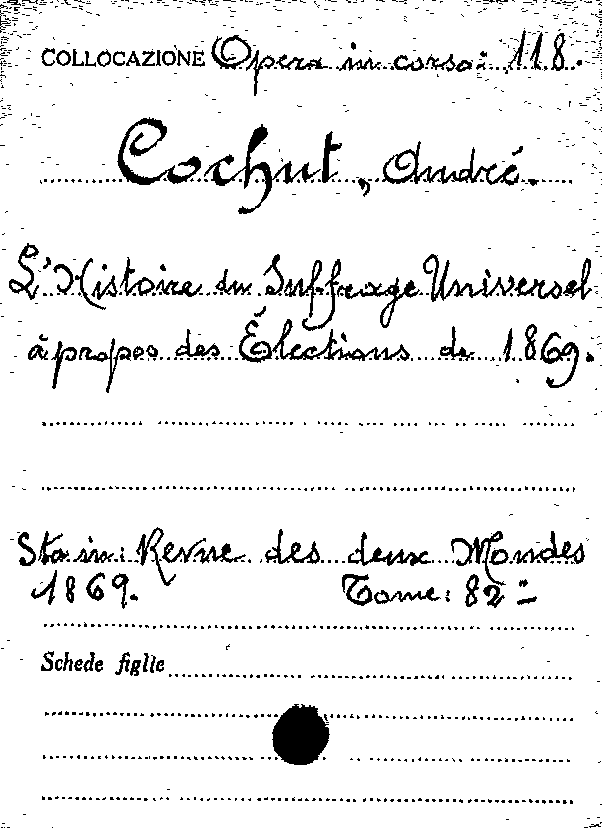 COLLOCAZIONE Opera in corso: 118.
Cochut, André.
L'Histoire du Suffrage Universel
à propos des Élections de 1869.
Sta in: Revue des deux Mondes
1869. Tome: 82º
Schede figlie